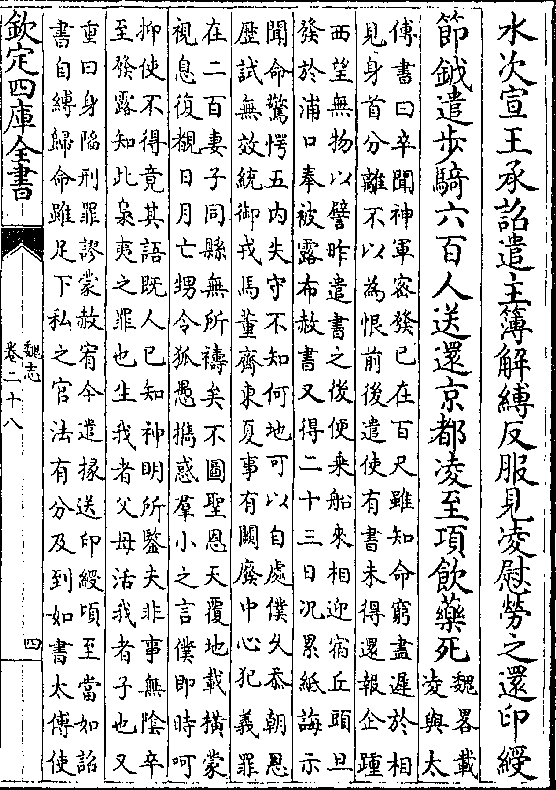 水次宣王承詔遣主簿解縛反服見凌慰勞之還印綬
節鉞遣步騎六百人送還京都凌至項飲藥死
魏畧載
凌與太
傅書曰卒聞神軍密發已在百尺雖知命窮盡遲於相
見身首分離不以為恨前後遣使有書未得還報企踵
西望無物以譬昨遣書之後便乗船來相迎宿丘頭旦
發於浦口奉被露布赦書又得二十三日况累紙誨示
聞命驚愕五内失守不知何地可以自處僕乆忝朝恩
歴試無效統御戎馬董齊東夏事有闕廢中心犯義罪
在二百妻子同縣無所禱矣不圖聖恩天覆地載橫蒙
視息復覩日月亡甥令狐愚擕惑羣小之言僕即時呵
抑使不得竟其語既人已知神明所鑒夫非事無隂卒
至發露知此梟夷之罪也生我者父母活我者子也又
重曰身陷刑罪謬蒙赦宥今遣掾送印綬頃至當如詔
書自縛歸命雖足下私之官法有分及到如書太傅使
欽定四庫全書
魏志
卷二十八
四